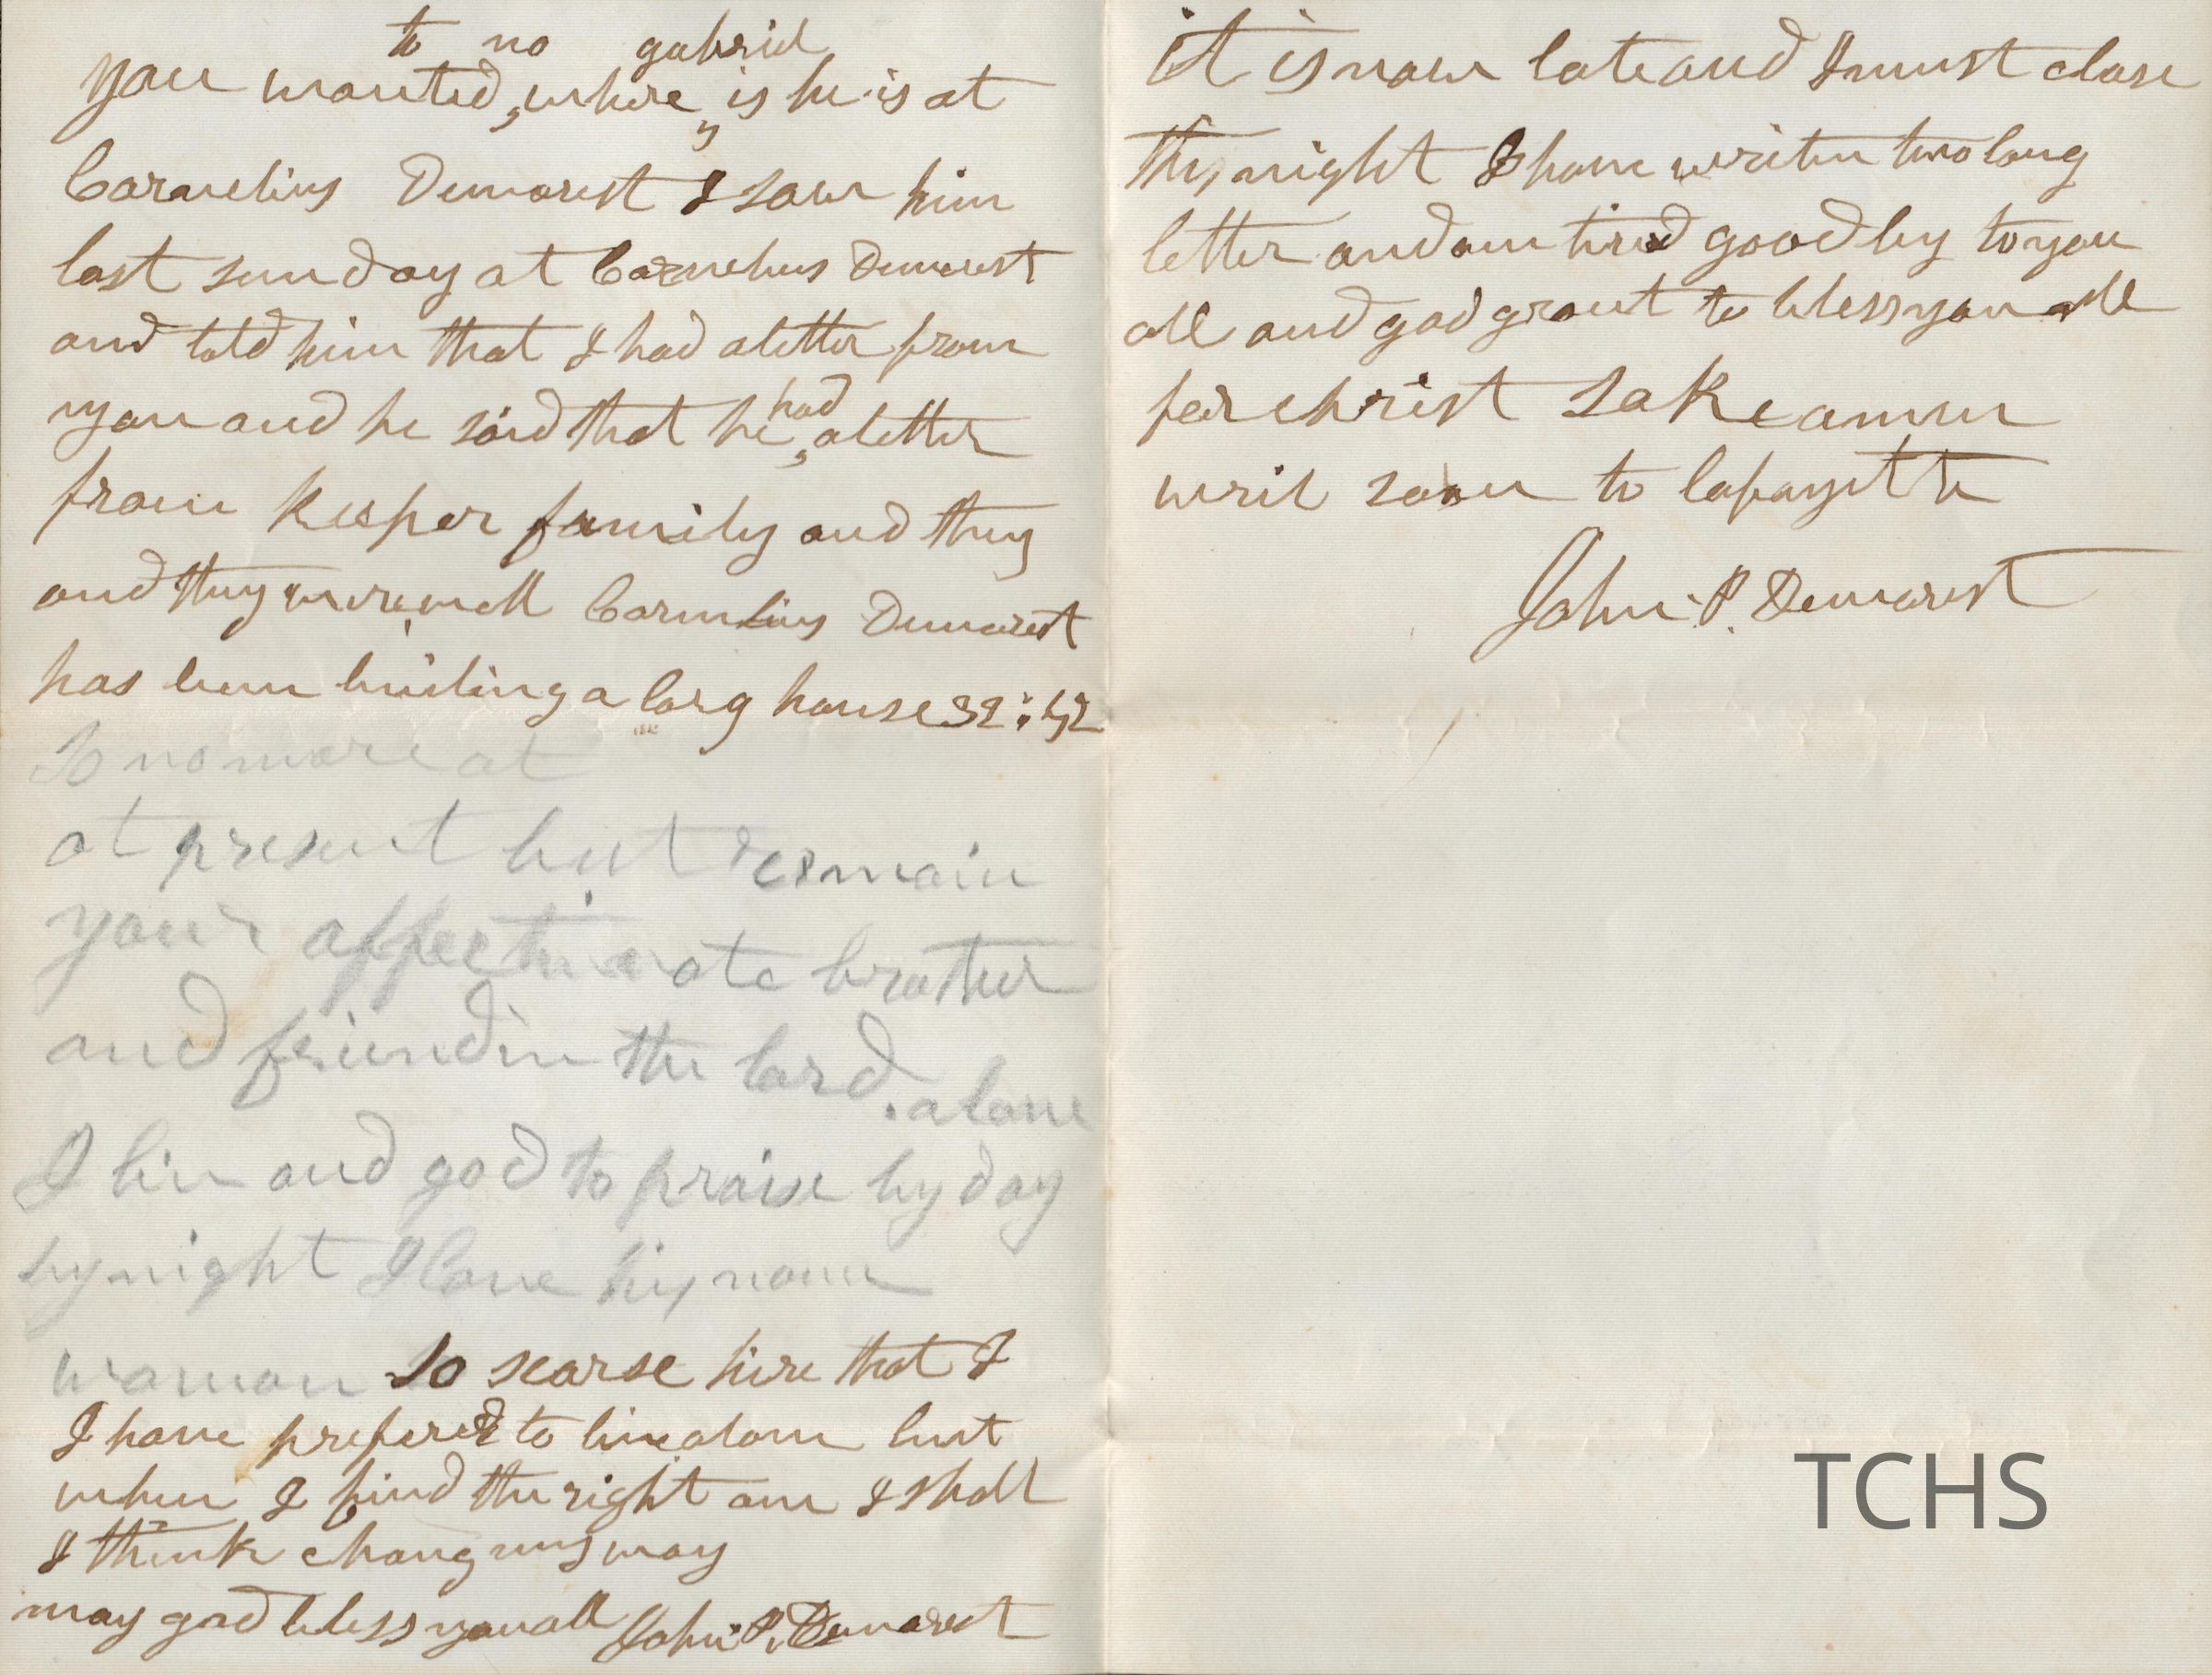 to no gabriel
you wanted, where, is he is at
Cornelius Demorest I saw him
last sunday at Cornelius Demorest
and told him that I had a letter from
had
you and he said that he, a letter
from Keesper family and they
and they were well Cornelius Demarest
has been builing a larg house 32 :
So no more at
at present but remain
your affectionate brother
and friend in the lord. alone
I liv and god to praise by day
by night I love his name
woman so scarse hire that I
I have preferred to live alone but
when I find the right one I shall
I think chang my way
may god bless you all John P. Demarest
it is now late and I must close
this night I have writen two long
letter and am tired good by to you
all and god grant to bless you all
for christ sake amen
writ soon to lafayette
John P. Demarest
TCHS